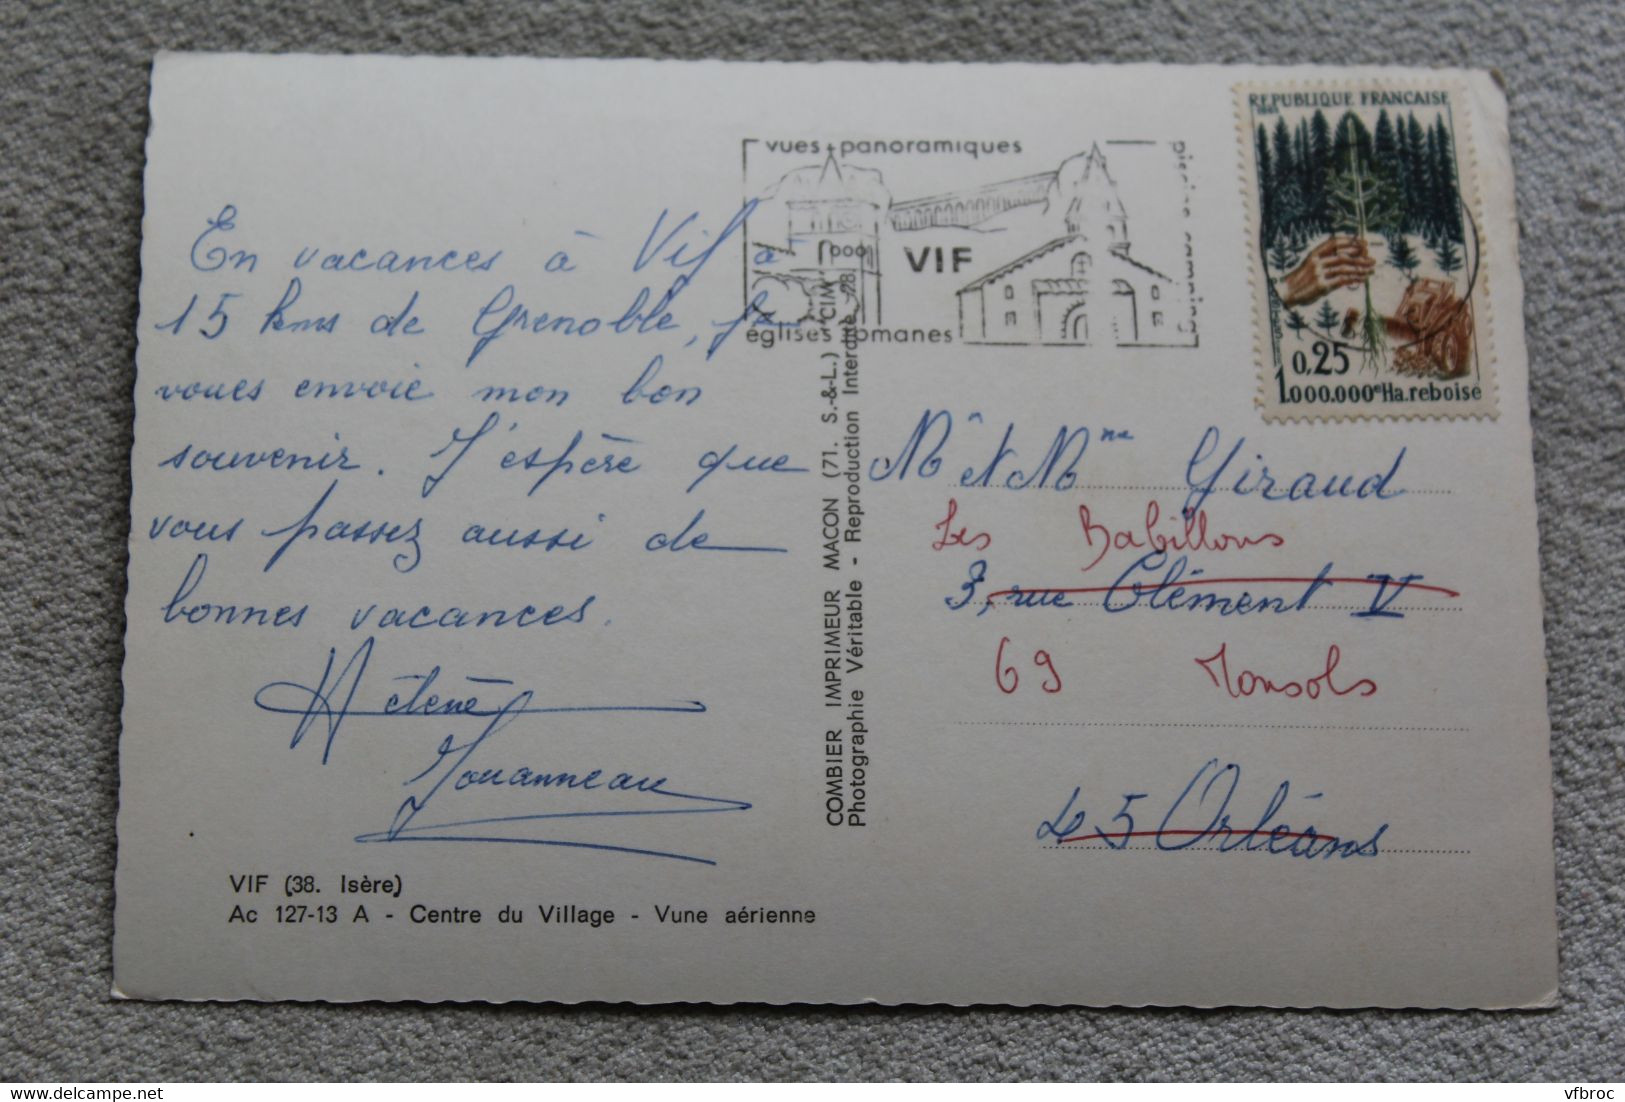 En vacances à Vif à
15 kms de Grenoble, je
vous envoie mon bon
souvenir. J'espère que
vous passez aussi de
bonnes vacances.
Hélène
Jouanneau
VIF (38. Isère)
Ac 127-13 A - Centre du Village - Vune aérienne
COMBIER IMPRIMEUR MACON (71. S.-&-L.) "CIM"
Photographie Véritable - Reproduction Interdite
vues panoramiques
piscine camping
VIF
églises romanes
REPUBLIQUE FRANCAISE
1965
0,25
1.000.000e Ha. reboisé
Mr et Mme Giraud
Les Babillons
3, rue Clément V
69 Monsols
45 Orléans
vfbroc